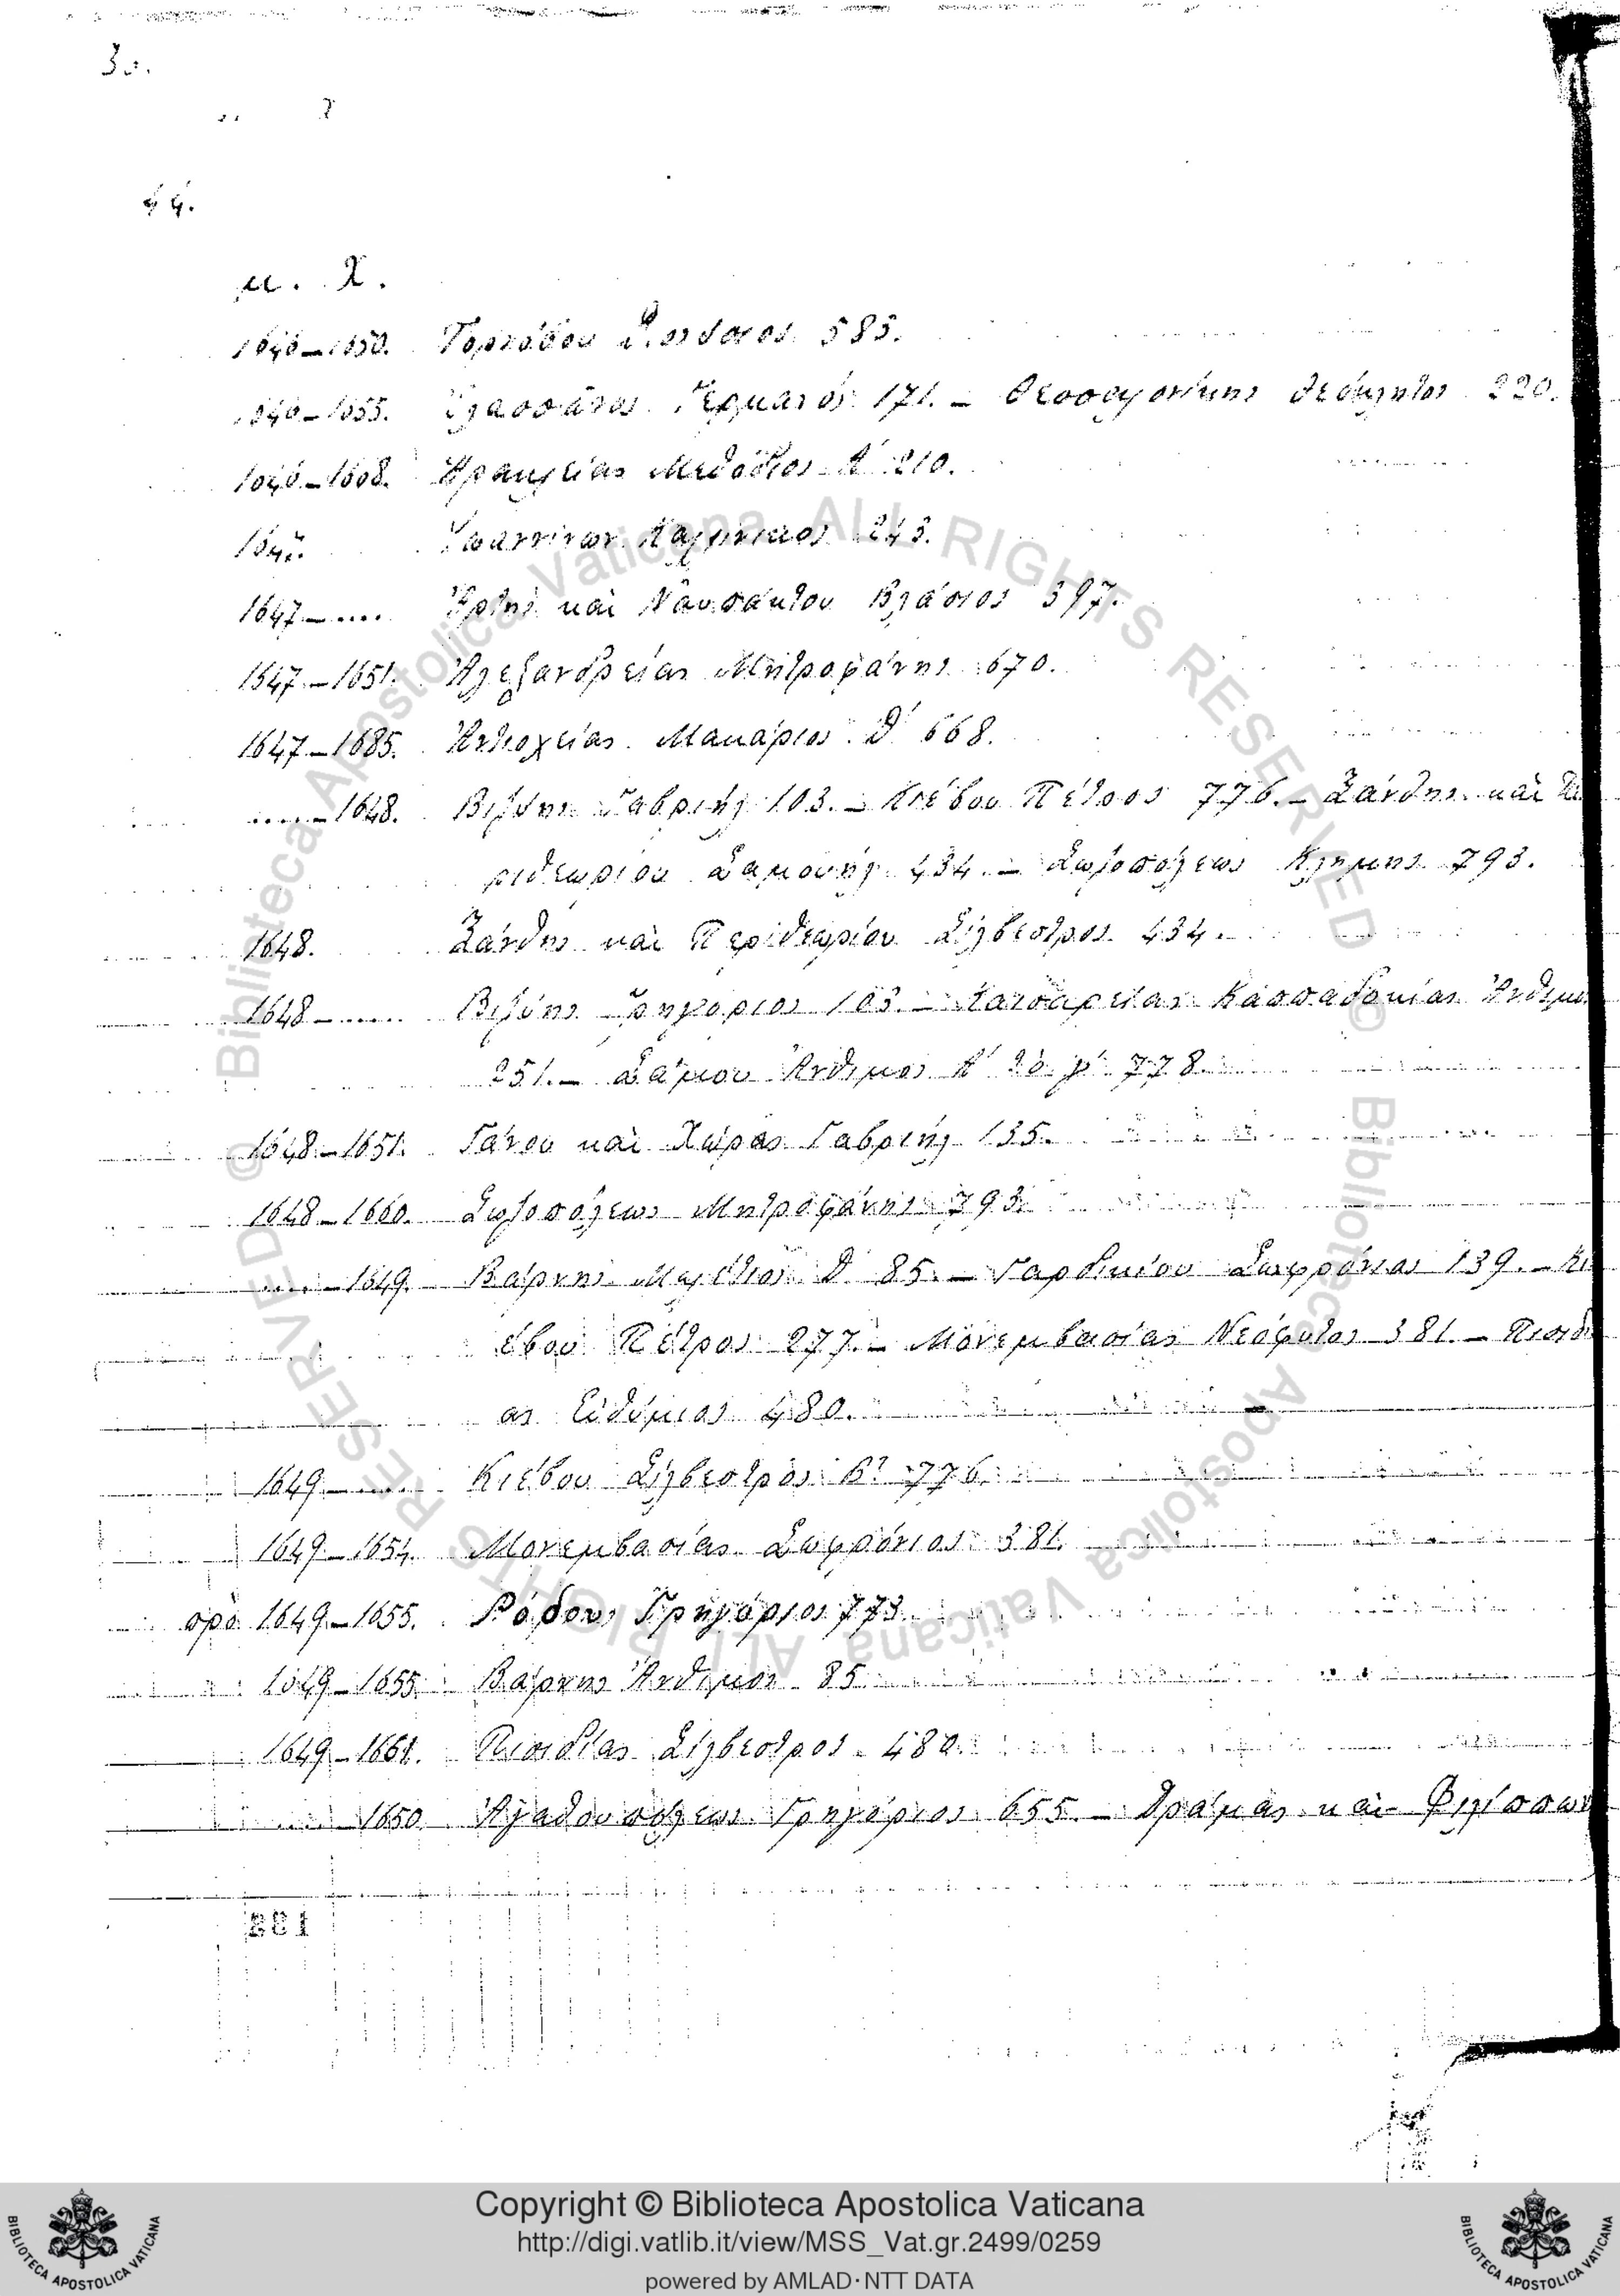 44.
μ. Χ.
1646–1650. 585.
1646–1655. Ἐλασσῶνος Γερμανός 171. – Θεσσαλονίκης Θεόκλητος 220.
1646–1668. Ἡρακλείας Μεθόδιος Α΄ 210.
Ἰωαννίνων Καλλίνικος 243.
1647–.... Ἄρτης καὶ Ναυπάκτου Βλάσιος 397.
1647–1651. Ἀλεξανδρείας Μητροφάνης 670.
1647–1685. Ἀντιοχείας Μακάριος Δ΄ 668.
....–1648. Βιζύης Γαβριήλ 103. – Κιέβου Πέτρος 776. – Ξάνθης καὶ Πε
ριθεωρίου Σαμουήλ 434. – Σωζοπόλεως Κλήμης 793.
1648. Ξάνθης καὶ Περιθεωρίου Σίλβεστρος 434.
1648–.... Βιζύης Γρηγόριος 103. – Καισαρείας Καππαδοκίας Ἄνθιμο
251. – Σάμου Ἄνθιμος Α΄ 778.
1648–1651. Γάνου καὶ Χώρας Γαβριήλ 135.
1648–1660. Σωζοπόλεως Μητροφάνης 793.
....–1649. Βάρνης Μελέτιος Δ΄ 85. – Γαρδικίου Σωφρόνιος 139. – Κι
έβου Πέτρος 277. – Μονεμβασίας Νεόφυτος 381. – Πισιδί
ας Εὐθύμιος 480.
1649–.... Κιέβου Σίλβεστρος Β΄ 776.
1649–1654. Μονεμβασίας Σωφρόνιος 381.
πρὸ 1649–1655. Ῥόδου Γρηγόριος 773.
1649–1655. Βάρνης Ἄνθιμος 85
1649–1661. Πισιδίας Σίλβεστρος 480.
1650. Ἀγαθουπόλεως Γρηγόριος 655. – Δράμας καὶ Φιλίππων
881
Copyright © Biblioteca Apostolica Vaticana
http://digi.vatlib.it/view/MSS_Vat.gr.2499/0259
powered by AMLAD·NTT DATA